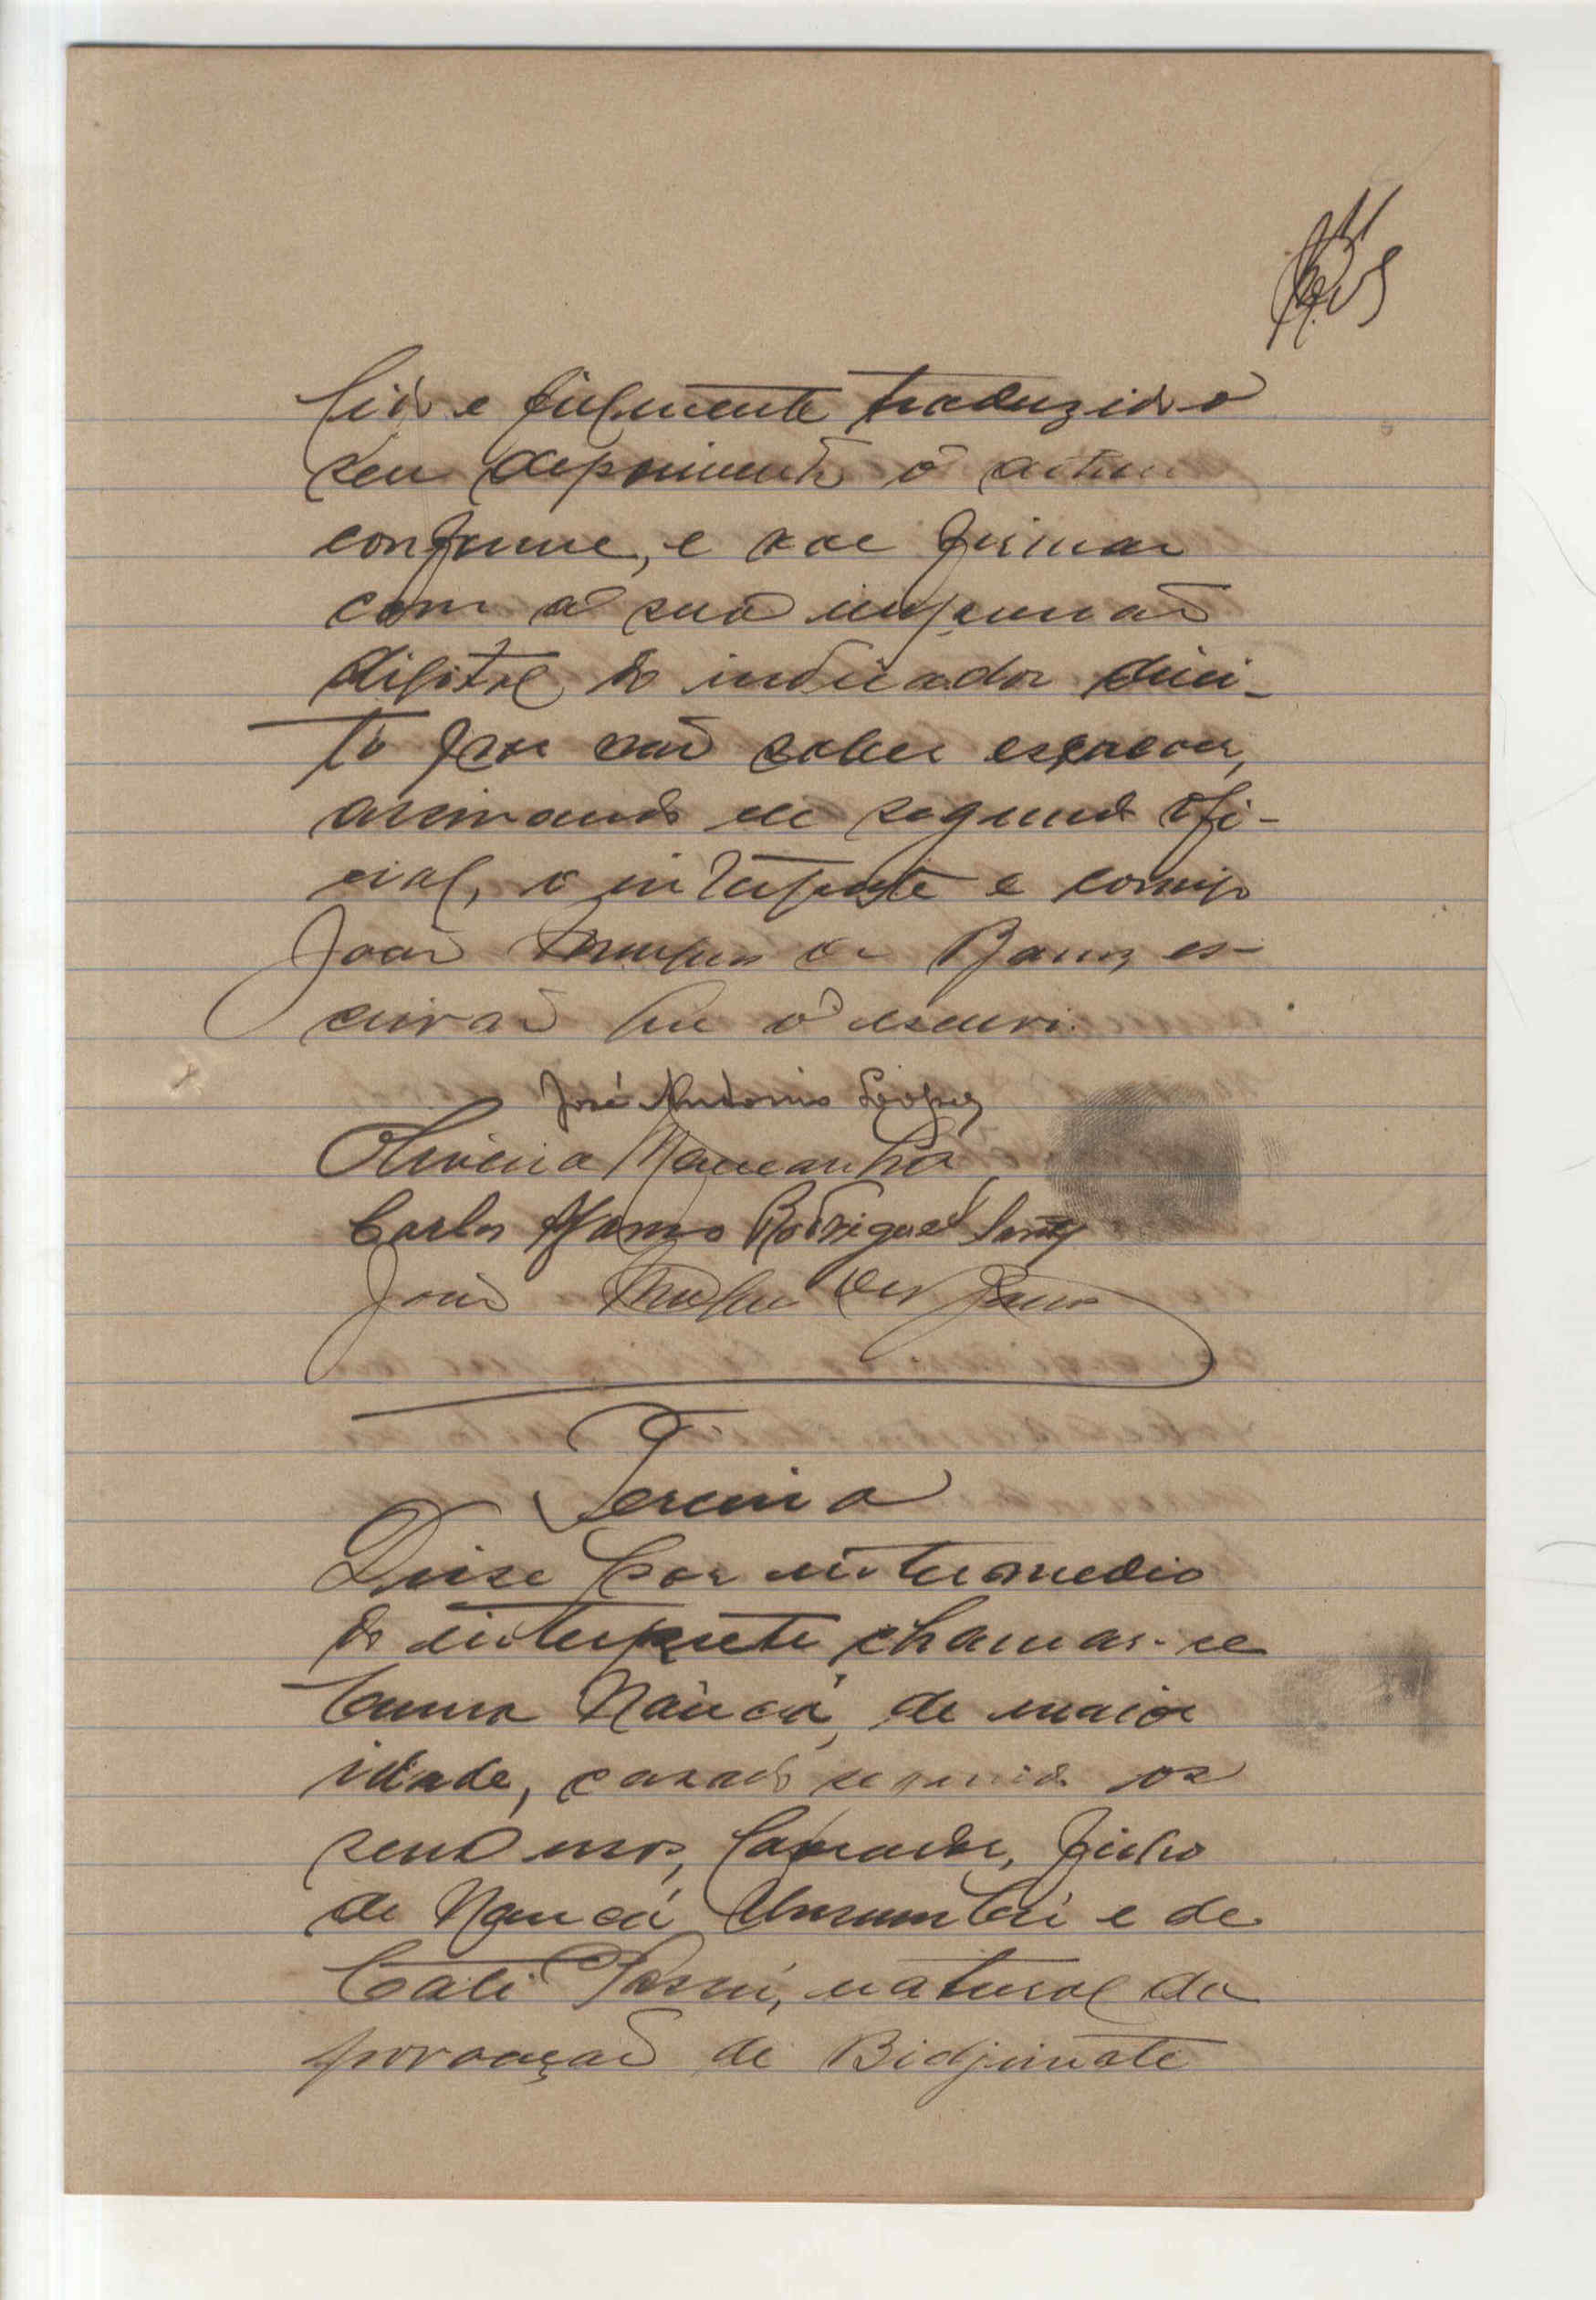 lido e fielmente traduzido o
seu depoimento o achou
conforme, e vae firmar
com a sua impressão
digital do indicador direi-
to por não saber escrever,
assinando ele segundo ofi-
cial, o interprete e comigo
João de Barros, es-
crivão que o escrevi.
José Antonio Lopes
Oliveira
Carlos Afonso Rodrigues Santy
João
Terceira
Disse por intermedio
do interprete chamar-se
Nancá, de maior
idade, casado segundo os
seus usos, lavrador, filho
de Nancá e de
natural da
povoação de Bidjimate